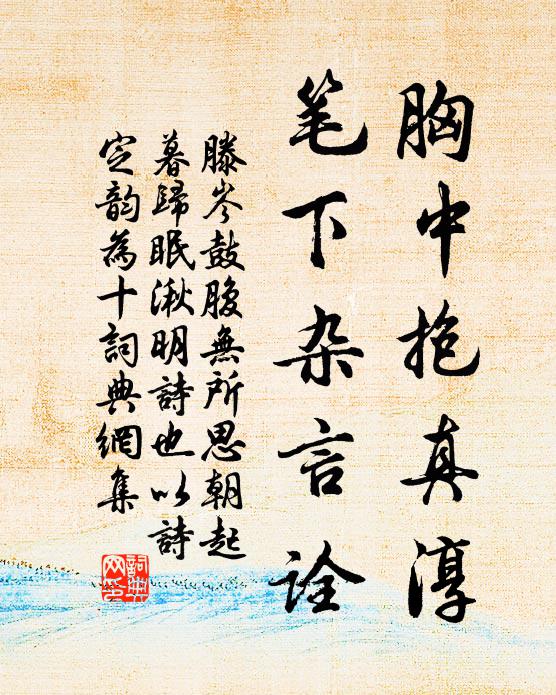 胸中抱真淳
笔下杂言诠
滕岑鼓腹無所思朝起
暮歸眠湫明詩也以詩
定韵為十詞典網集
詞典网印